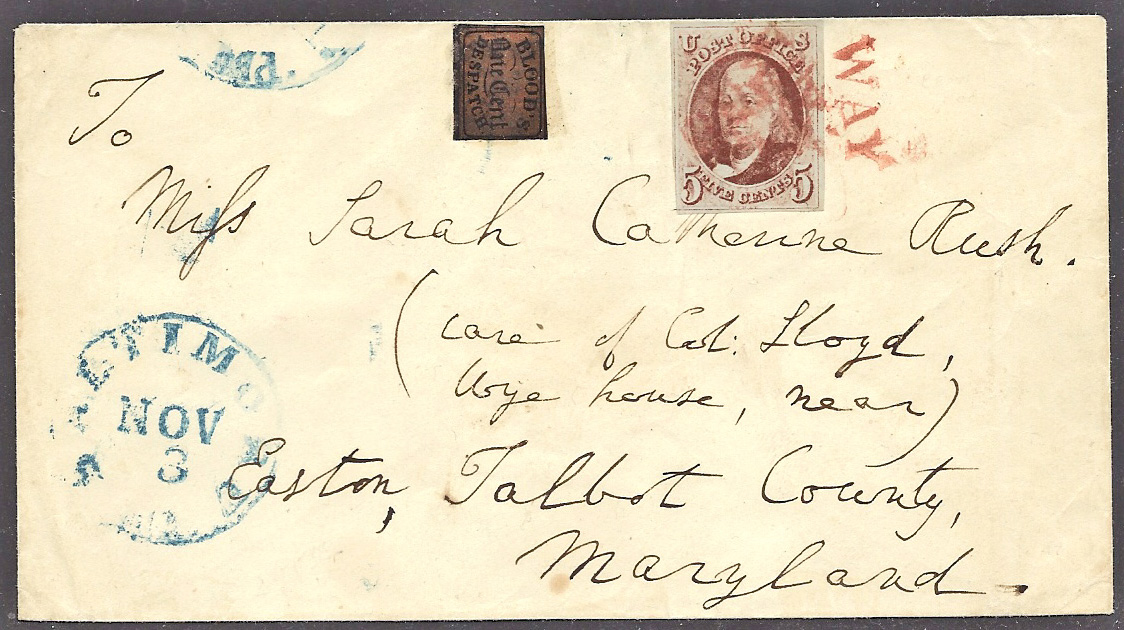 BLOOD'S
One Cent
DESPATCH
U S
POST OFFICE
FIVE CENTS
5 5
WAY
To
Miſs Sarah Catherine Rush.
(care of Col: Lloyd,
Wye house, near)
Easton, Talbot County,
Maryland.
BALTIMORE
NOV
3